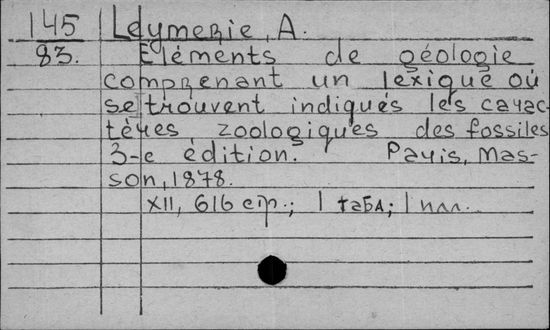 145 Leymerie, A.
83. Eléments de géologie
comprenant un lexique où
se trouvent indiqués les carac-
tères zoologiques des fossiles
3-e édition. Paris, Mas-
son, 1878.
XII, 616 стр.; 1 табл; 1 илл.